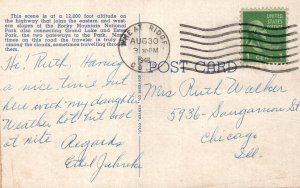 This scene is at a 12,000 foot altitude on
the highway that joins the eastern and west-
ern slopes of the Rocky Mountain National
Park also connecting Grand Lake and Estes
the two gateways to the Park. Many
times on this road the traveler is truly
among the clouds, sometimes travelling through
them.
WHEAT RIDGE
AUG 30
PM
1948
COLO
UNITED STATES
POSTAGE
1¢
POST CARD
Hi! Ruth, Having
a nice time out
here with my daughter
Weather hot but cool
at nite. Regards
Ethel
Mrs Ruth Walker
5936 - Sangamon St
Chicago
Ill.